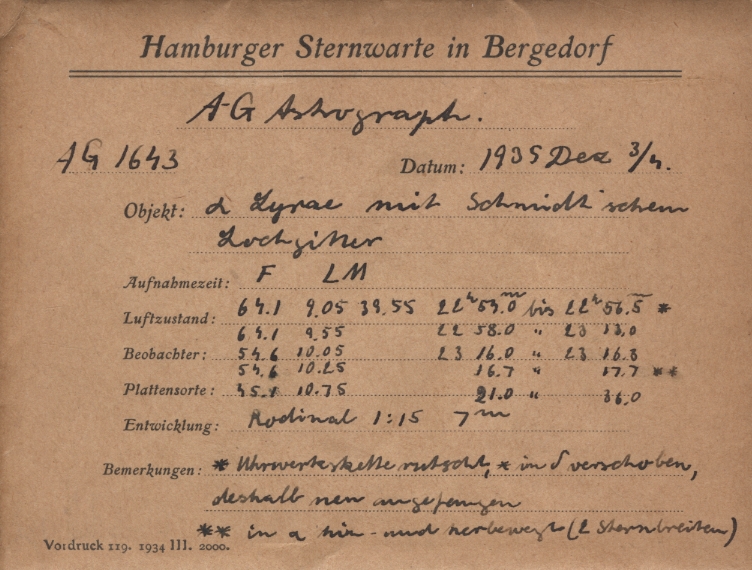 Hamburger Sternwarte in Bergedorf
A-G Astrograph.
AG 1643 Datum: 1935 Dez 3/4.
Objekt: α Lyrae mit Schmidt'schem
Lochgitter
Aufnahmezeit: F LM
Luftzustand: 64.1 9.05 39.55 22ʰ 54.0ᵐ bis 22ʰ 56.5ᵐ *
64.1 9.55 22 58.0 " 23 13.0
Beobachter: 54.6 10.05 23 16.0 " 23 16.3
54.6 10.25 16.7 " 17.7 **
Plattensorte: 45.1 10.75 21.0 " 36.0
Entwicklung: Rodinal 1:15 7ᵐ
Bemerkungen: * Uhrwerkskette rutscht, * in δ verschoben,
deshalb neu angefangen
** in α hin- und herbewegt (2 Sternbreiten)
Vordruck 119. 1934 III. 2000.